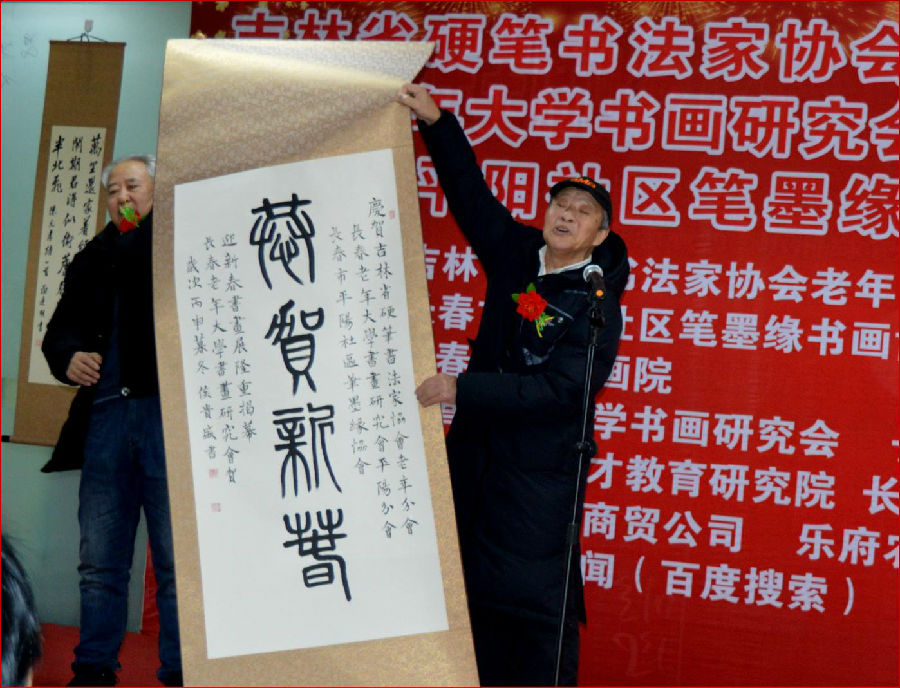 吉林省硬笔书法家协会
年大学书画研究会
平阳社区笔墨缘
吉林 书法家协会老年
长春 社区笔墨缘书画
春 画院
学书画研究会
才教育研究院 长
商贸公司 乐府
闻（百度搜索）
慶賀吉林省硬筆書法家協會老年分會
長春老年大學書畫研究會平陽分會
長春市平陽社區筆墨缘協會
恭賀新春
迎新春書畫展隆重揭幕
長春老年大學書畫研究會賀
歲次丙申暮冬 侯貴
書
萬里還家著
開期君得似衡
半北飛